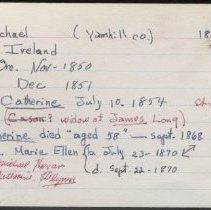 chael (Yamhill co.) 18
Ireland
Ore. Nov - 1850
Dec 1851
Catherine July 10, 1854
(Cason? widow of James Long)
erine died "aged 58" — Sept. 1868
Marie Ellen July 23 - 1870
(d. Sept. 22 - 1870
Michael
Catherine